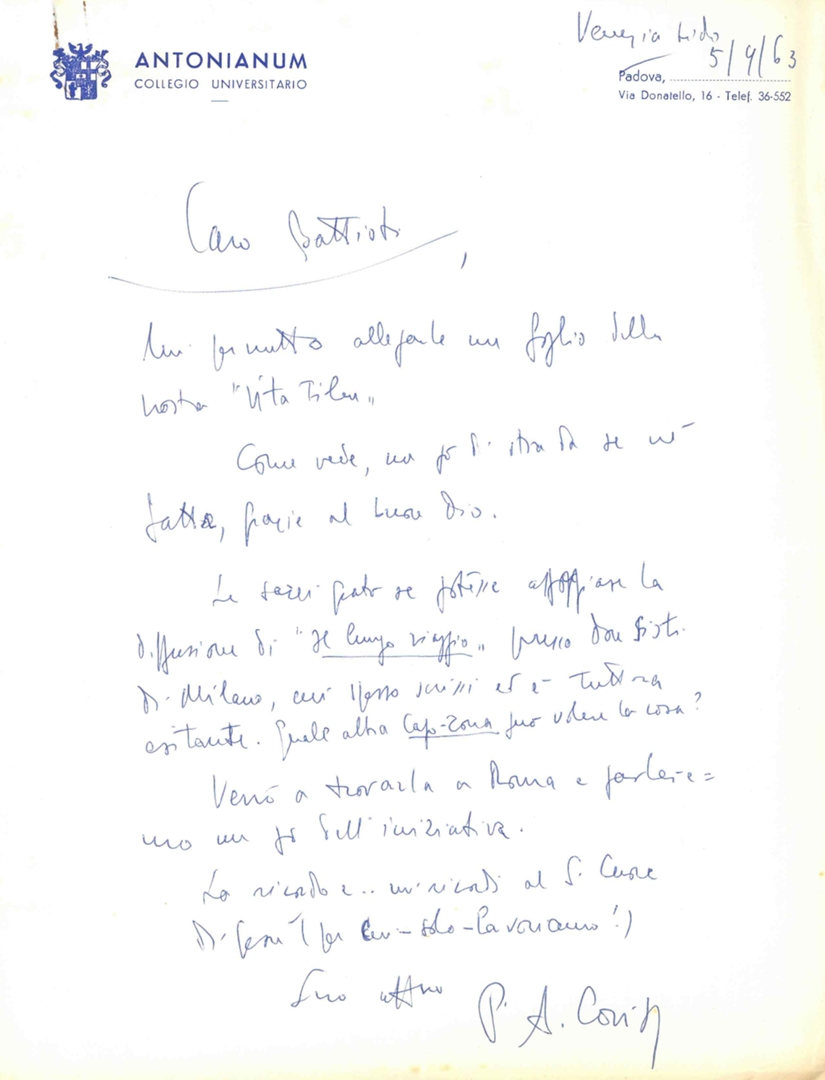 ANTONIANUM
COLLEGIO UNIVERSITARIO
Venezia Lido
5/9/63
Padova,
Via Donatello, 16 - Telef. 36-552
Caro Battisti,
Mi permetto allegarle un foglio della
nostra "Vita Film"
Come vede, un po' di strada se n'è
fatta, grazie al buon Dio.
Le sarei grato se potesse appoggiare la
diffusione di "Il lungo viaggio" presso don
di Milano, cui spesso scrissi ed è tuttora
esitante. Quale altra Capo-Zona può volere la cosa?
Verrò a trovarla a Roma e parlere=
mo un po' dell'iniziativa.
La ricordo e.. mi ricordi al S. Cuore
di Gesù (per cui-solo-lavoriamo!)
Suo affmo
P. A. Covi